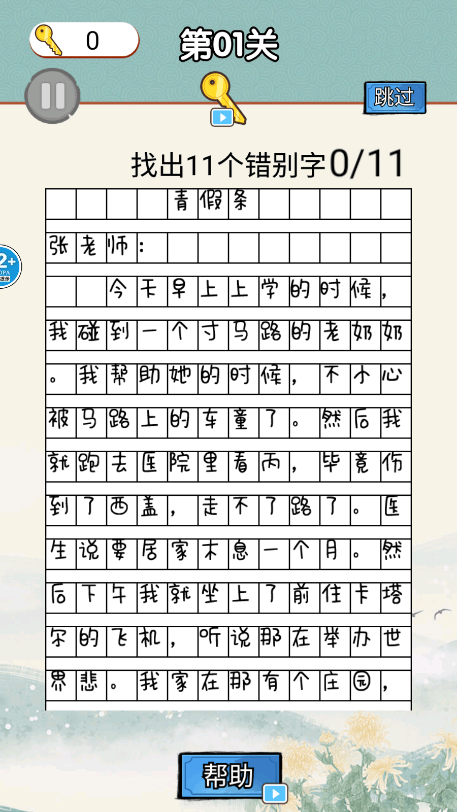 0
第01关
跳过
找出11个错别字0/11
青假条
张老师：
今天早上上学的时候，
我碰到一个寸马路的老奶奶
。我帮助她的时候，不小心
被马路上的车童了。然后我
就跑去医院里看丙，毕竟伤
到了西盖，走不了路了。医
生说要居家木息一个月。然
后下午我就坐上了前住卡塔
尔的飞机，听说那在举办世
界悲。我家在那有个庄园，
2+
帮助